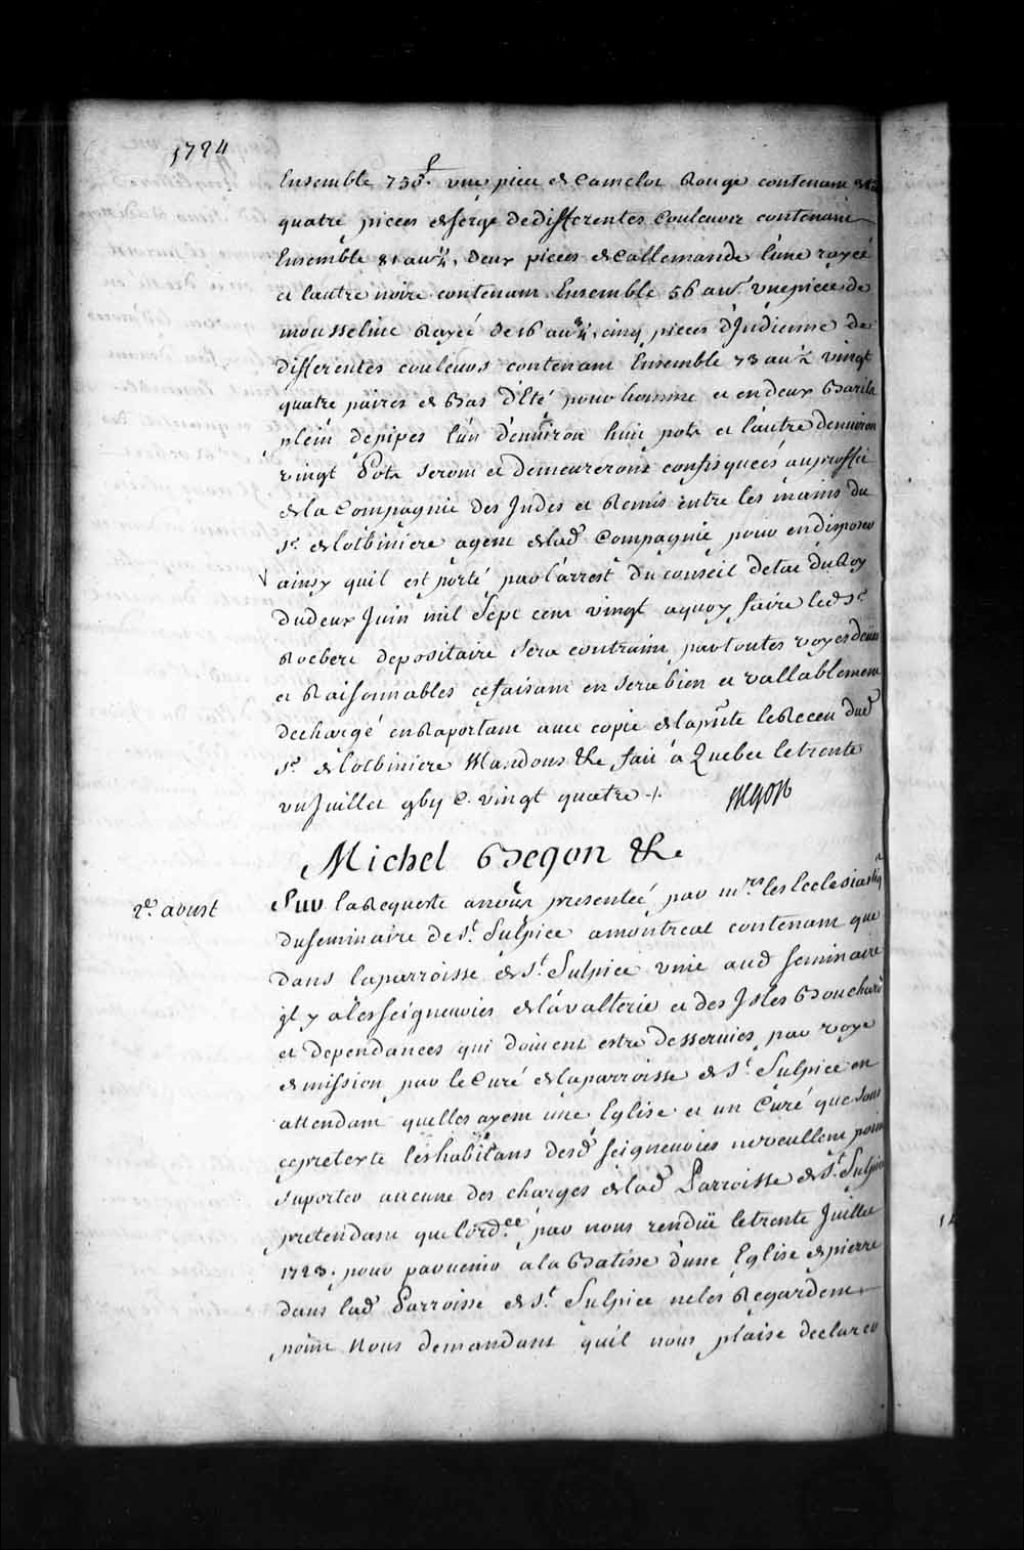 1724
Ensemble 750.# une piece de Camelot Rouge contenant
quatre pieces de serge de differentes Couleurs contenant
Ensemble 81 aun. ¼, deux pieces de Callemande l'une rayeé
et lautre noire contenant Ensemble 56 aun. une piece de
mousseline Rayeé de 16 au ¾, cinq pieces d'Indienne de
differentes couleurs contenant Ensemble 73 au ½ vingt
quatre paires de Bas d'Eté pour homme et en deux Barils
plein de pipes l'un d'environ huit pots et lautre denviron
vingt Pots seront et demeureront confisqueés au proffit
de la Compagnie des Indes et Remis entre les mains du
Sr. de lotbiniere agent de lad Compagnie pour en disposer
ainsy quil est porté par l'arrest du conseil detat du Roy
du deux Juin mil Sept cent vingt a quoy faire led Sr.
Rocbert depositaire sera contraint par toutes voyes deües
et Raisonnables ce faisant en sera bien et vallablement
dechargé en Raportant avec copie de la pnte le Receu dud
Sr. de lotbiniere Mandons &c. fait a Quebec le trente
un Juillet gbij C. vingt quatre ./.      Begon
Michel Begon &c.
2e. aoust
Sur la Requeste a nous presenteé par mrs. les Ecclesiastiq
du seminaire de St. Sulpice a montreal contenant que
dans la parroisse de St. Sulpice unie aud seminaire
il y a les seigneuries de lavalterie et des Isles Bouchard
et dependances qui doivent estre desservies par voye
de mission par le Curé de la parroisse de St. Sulpice en
attendant quelles ayent une Eglise et un Curé que sous
ce pretexte les habitans desd seigneuries ne veullent point
suporter aucune des charges de lad Parroisse de St. Sulpice
pretendant que lord.ce par nous rendüe le trente Juillet
1723. pour parvenir a la Batisse d'une Eglise de pierre
dans lad Parroisse de St. Sulpice ne les Regardent
point Nous demandant quil nous plaise declarer